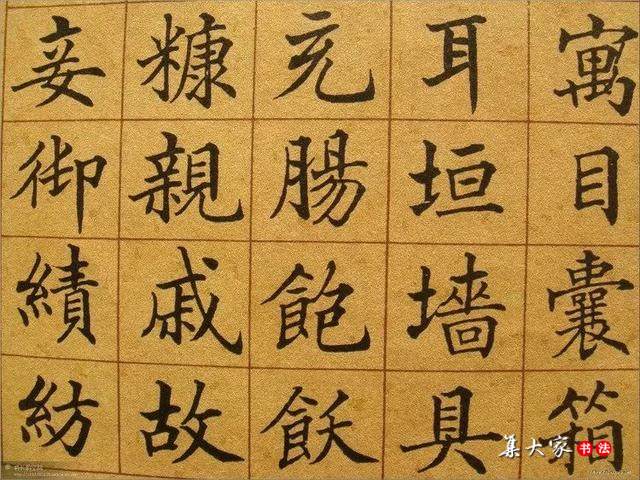 寓目囊箱
耳垣墻具
充腸飽飫
糠親戚故
妾御績紡
集大家 书法